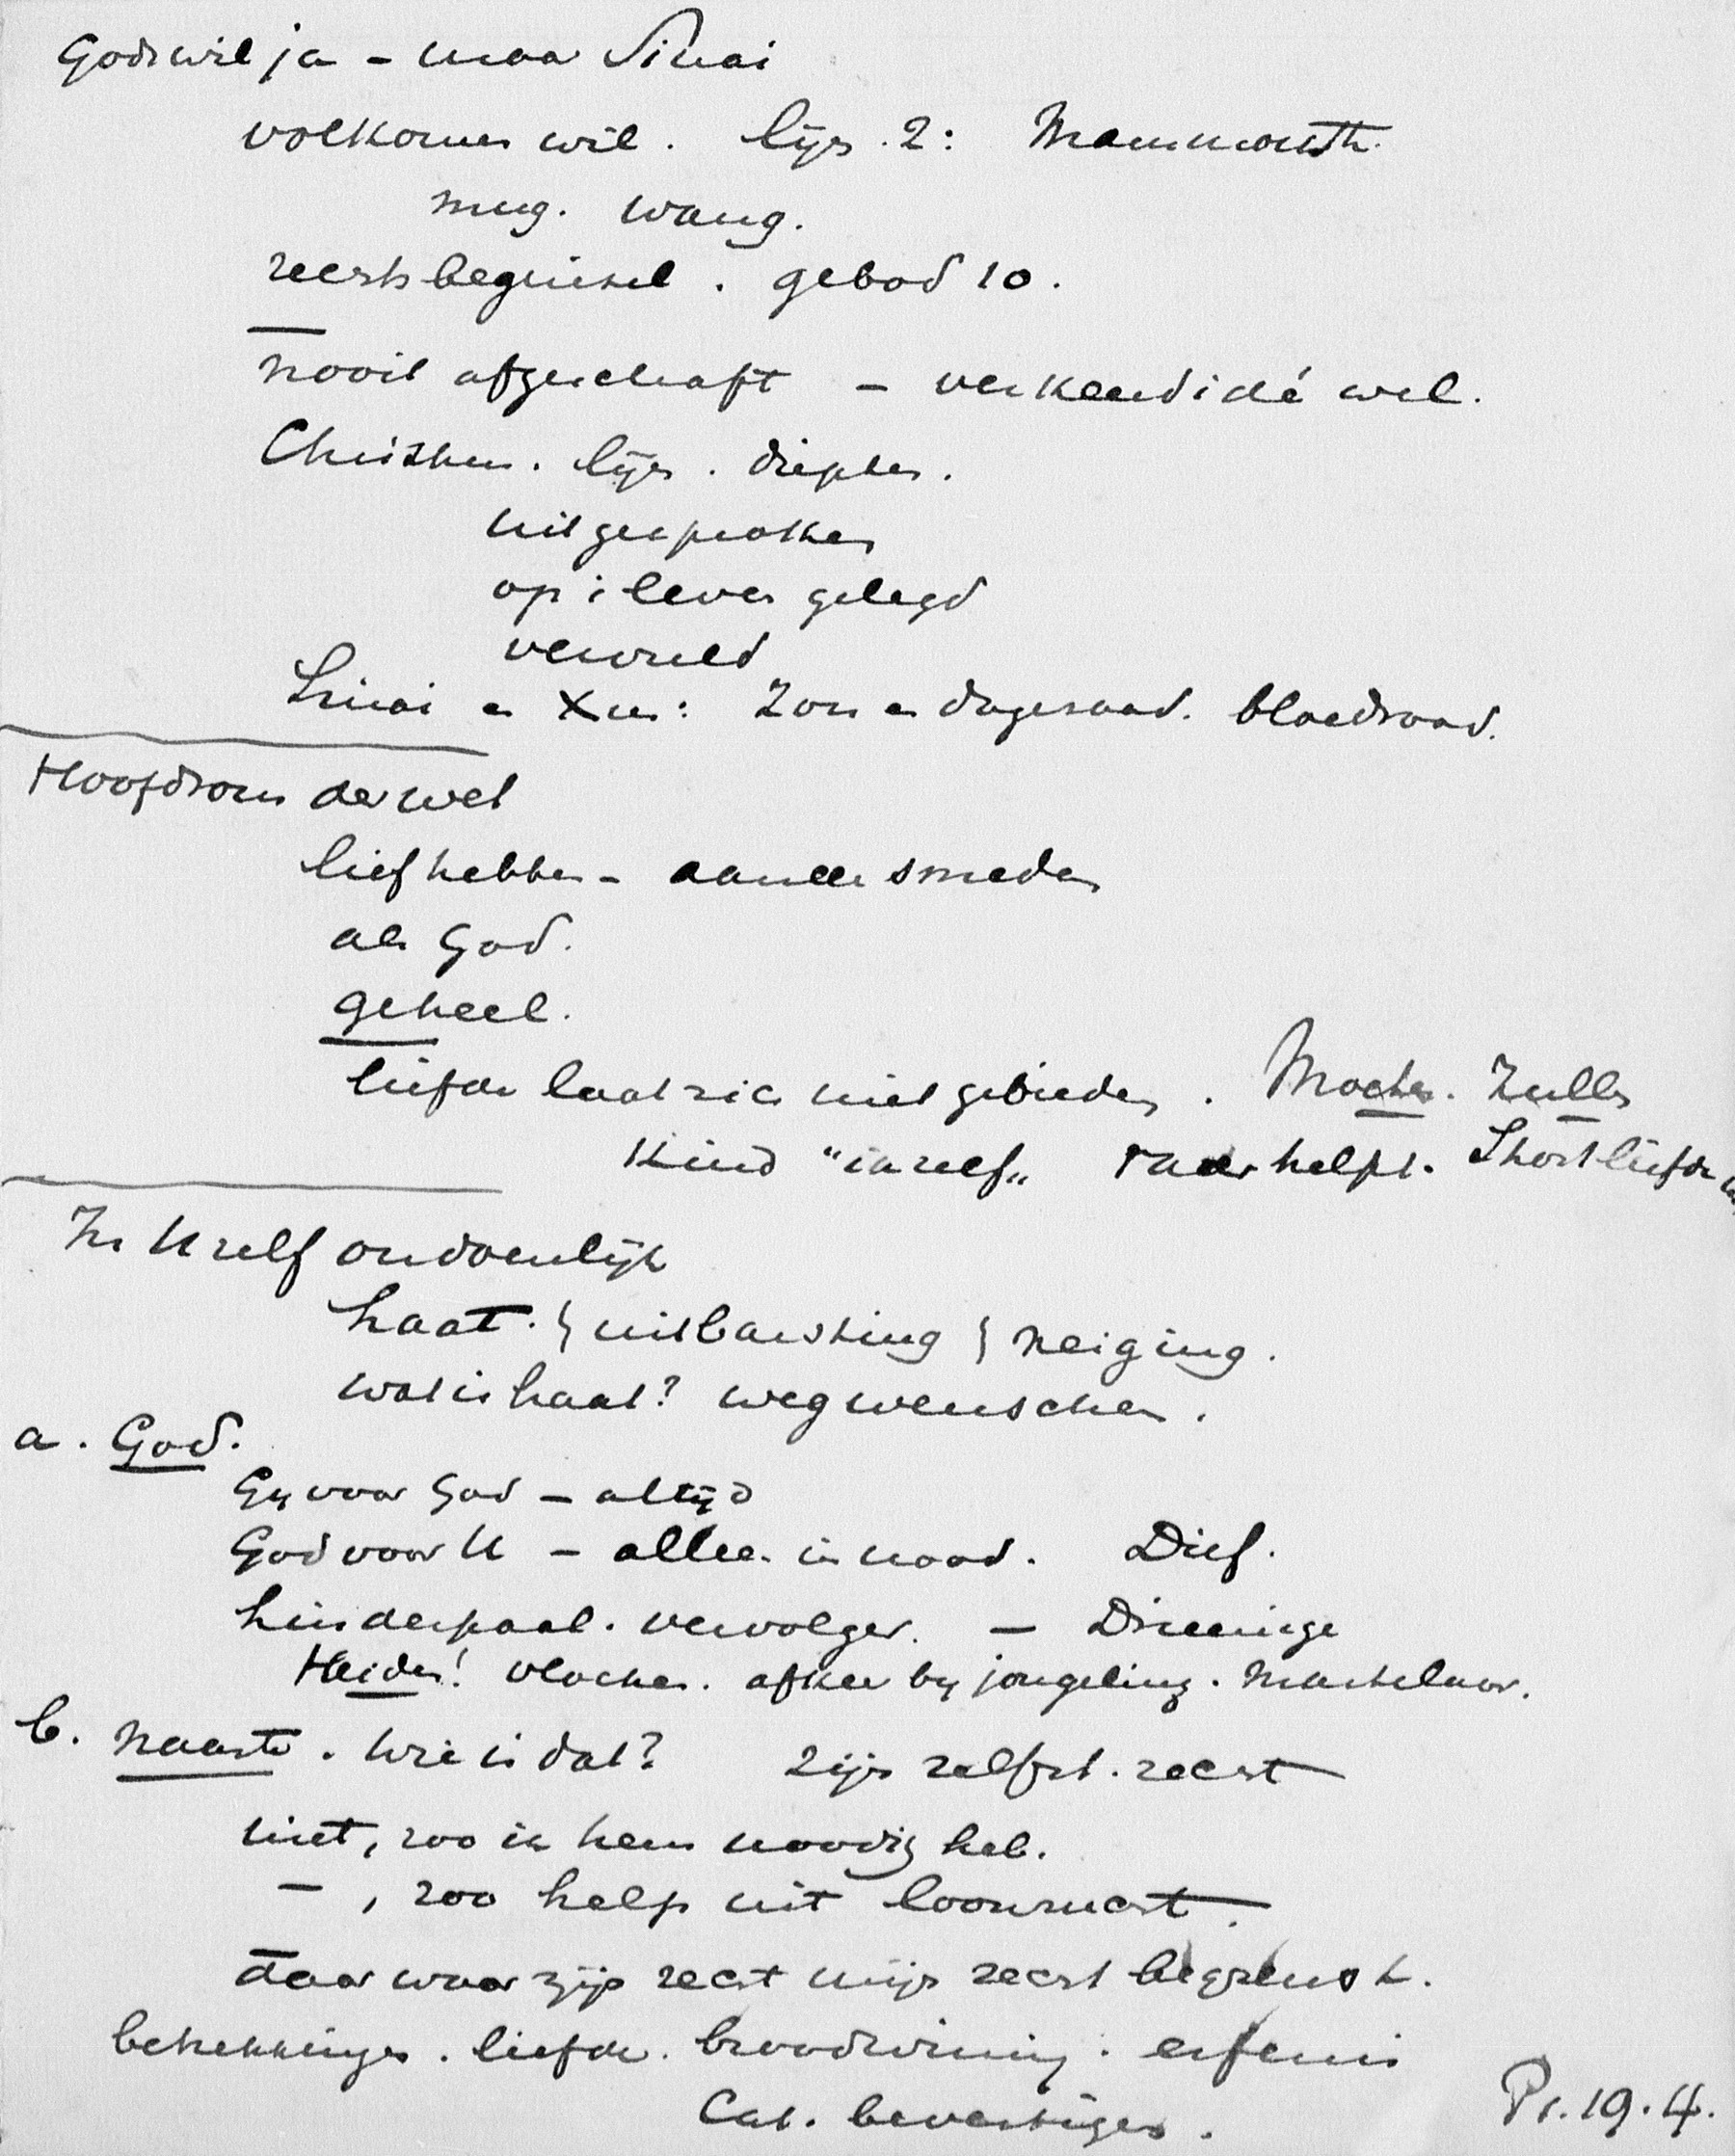 Gods wil ja - maar Sinai
volkomen wil. lijn. 2: Mammouth.
mug. wang.
rechtsbeginsel. gebod 10.
nooit afgeschaft - verkeerd idé wel.
Christen. lijn. diepten.
uitgesproken
op 't leven gelegd
vervuld
Sinai en Xus: Zon en dageraad. bloedrood.
Hoofdsom der wet
liefhebben - aaneensmeden
als God.
geheel.
liefde laat zich niet gebieden. Mochen. Zullen
Kind "ikzelf" vader helpt.
In Uzelf ondoenlijk
haat. } uitbarsting } neiging.
wat is haat? weg wenschen.
a. God.
Gij voor God - altijd
God voor U - alleen in nood. Dief.
hinderpaal. vervolger. - Dreeninge
Heiden! vloeken. afkeer bij jongeling. Martelaar.
b. naaste. Wie is dat? zijn zelfst. recht
niet, zoo ik hem noodig heb.
- , zoo help uit loonzucht.
daar waar zijn recht mijn recht begrenst.
betrekkingen. liefde. broodwinning. erfenis
Cat. bevestigen. Ps. 19. 4.